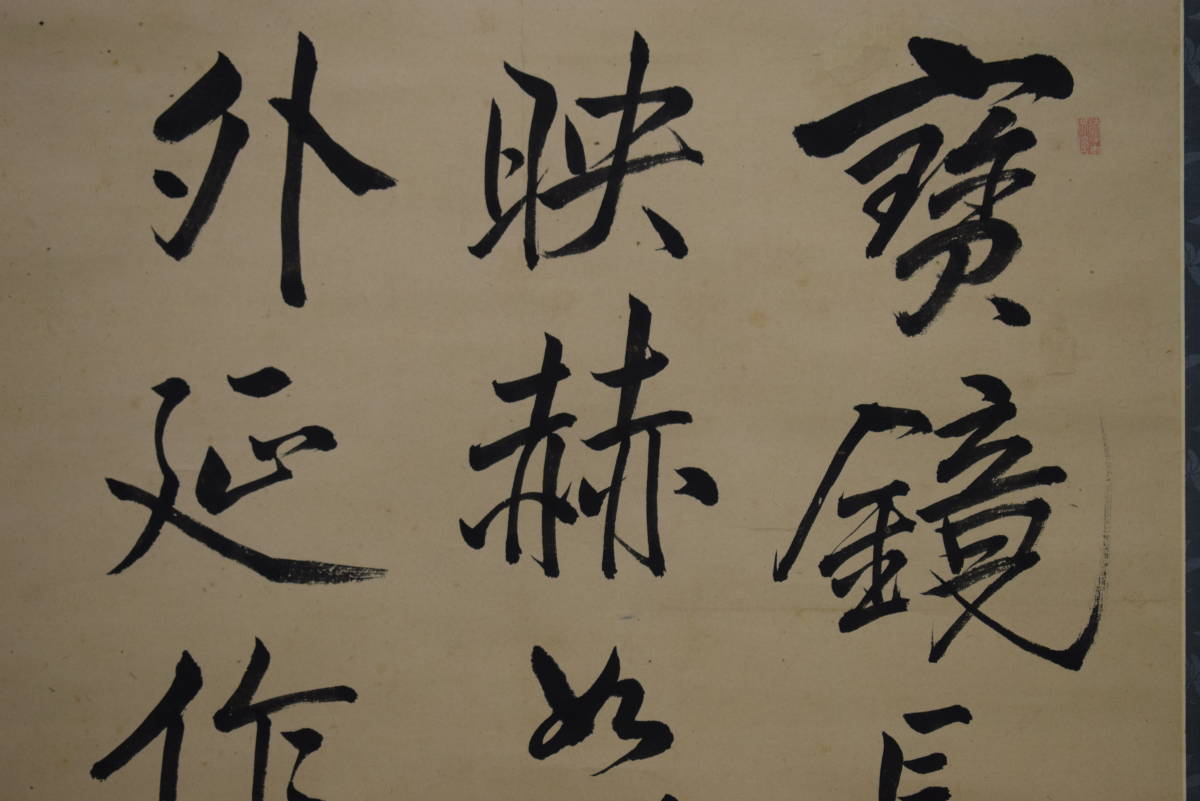 寶鏡
映赫如
外延作